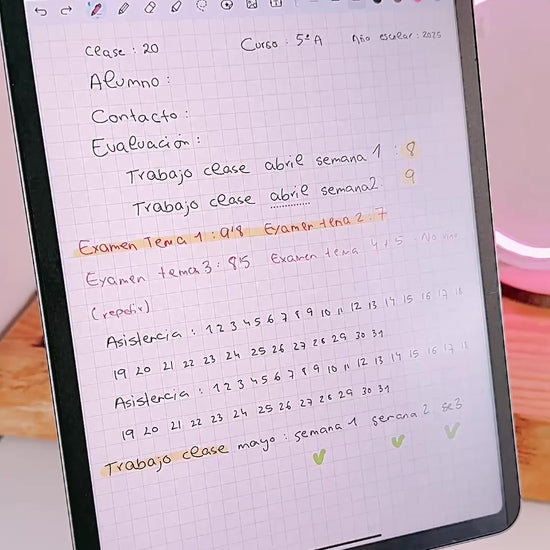 Clase : 20 Curso : 5º A Año escolar : 2025
Alumno :
Contacto :
Evaluación :
Trabajo clase abril semana 1 : 8
Trabajo clase abril semana 2 : 9
Examen Tema 1 : 9'8 Examen tema 2 : 7
Examen tema 3 : 8'5 Examen tema 4 + 5 No vino
(repetir)
Asistencia : 1 2 3 4 5 6 7 8 9 10 11 12 13 14 15 16 17 18
19 20 21 22 23 24 25 26 27 28 29 30 31
Asistencia : 1 2 3 4 5 6 7 8 9 10 11 12 13 14 15 16 17 18
19 20 21 22 23 24 25 26 27 28 29 30 31
Trabajo clase mayo : semana 1 semana 2 se3